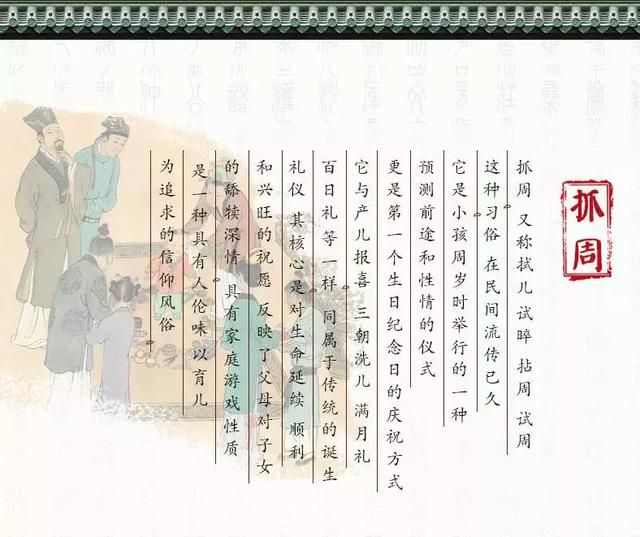 抓周
抓周 又称拭儿 试晬 拈周 试周
这种习俗 在民间流传已久
它是小孩周岁时举行的一种
预测前途和性情的仪式
更是第一个生日纪念日的庆祝方式
它与产儿报喜 三朝洗儿 满月礼
百日礼等一样 同属于传统的诞生
礼仪 其核心是对生命延续 顺利
和兴旺的祝愿 反映了父母对子女
的舔犊深情 具有家庭游戏性质
是一种具有人伦味 以育儿
为追求的信仰风俗